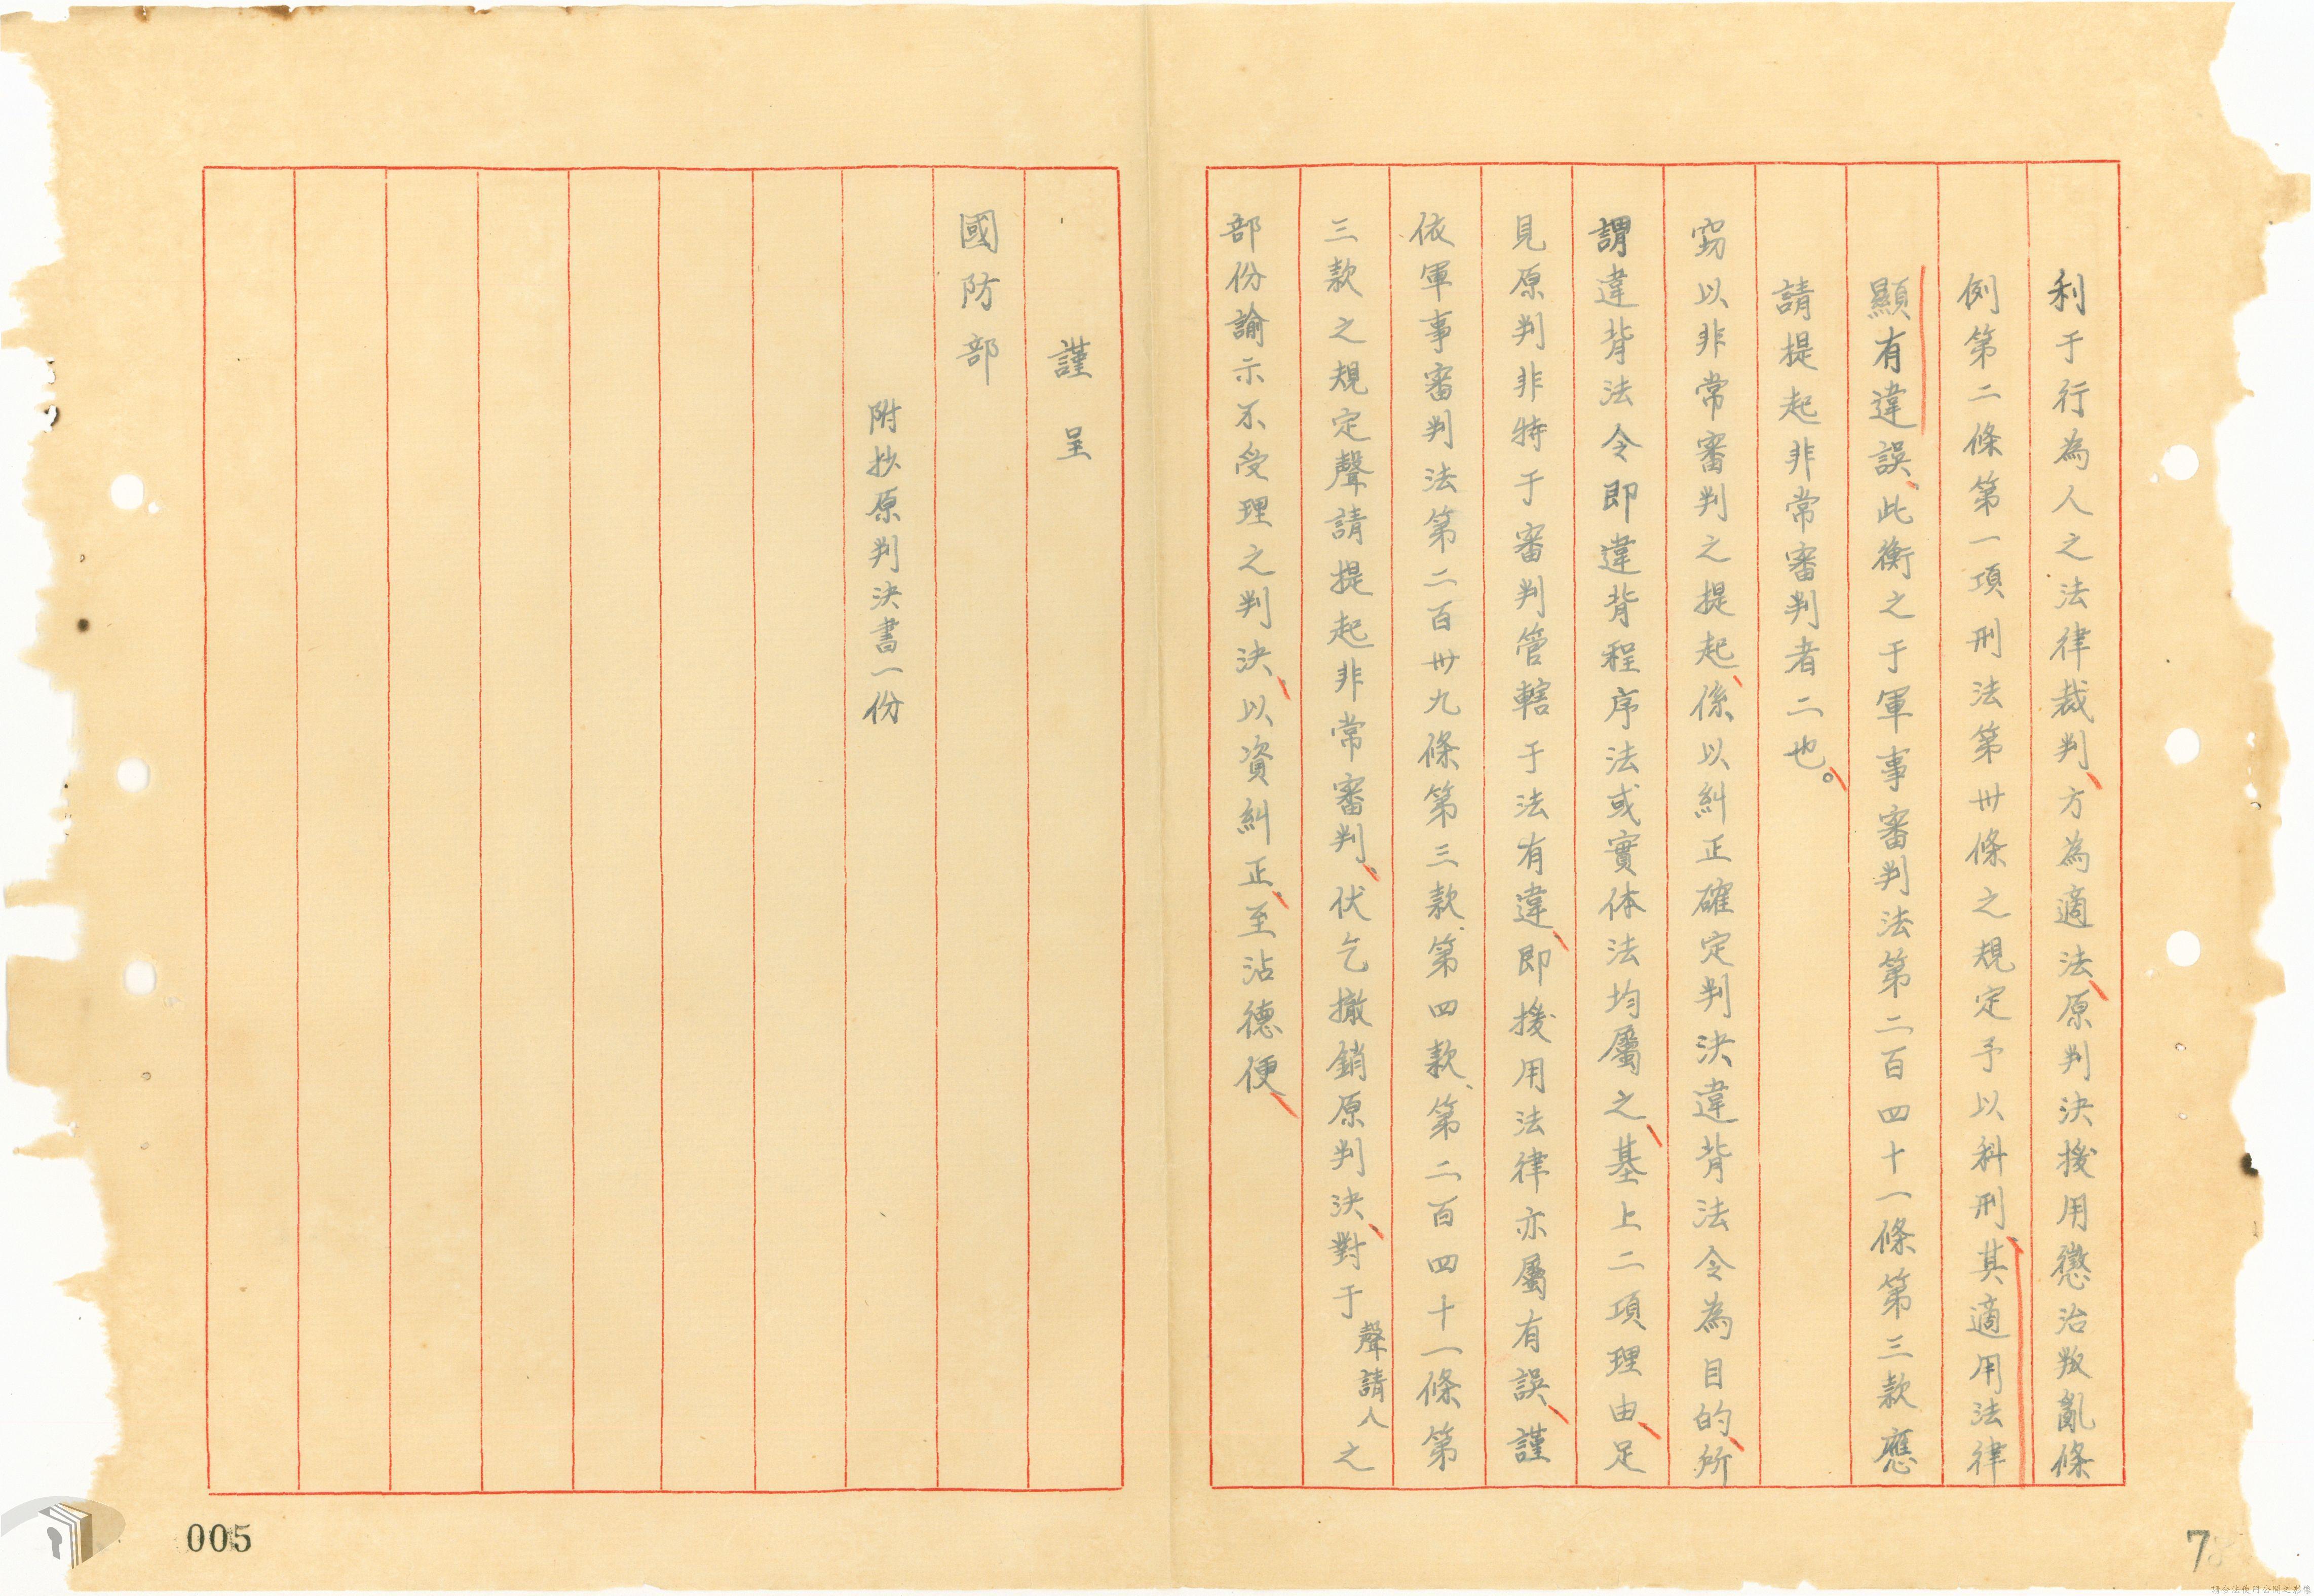 利于行為人之法律裁判、方為適法、原判決援用懲治叛亂條
例第二條第一項刑法第卅條之規定予以科刑、其適用法律
顯有違誤、此衡之于軍事審判法第二百四十一條第三款應
請提起非常審判者二也。
窃以非常審判之提起、係以糾正確定判決違背法令為目的、所
謂違背法令即違背程序法或實体法均屬之、基上二項理由、足
見原判非特于審判管轄于法有違、即援用法律亦屬有誤、謹
依軍事審判法第二百卅九條第三款、第四款、第二百四十一條第
三款之規定聲請提起非常審判、伏乞撤銷原判決、對于聲請人之
部份諭示不受理之判決、以資糾正、至沾德便、
謹呈
國防部
附抄原判決書一份
005
7
請合法使用公開之影像